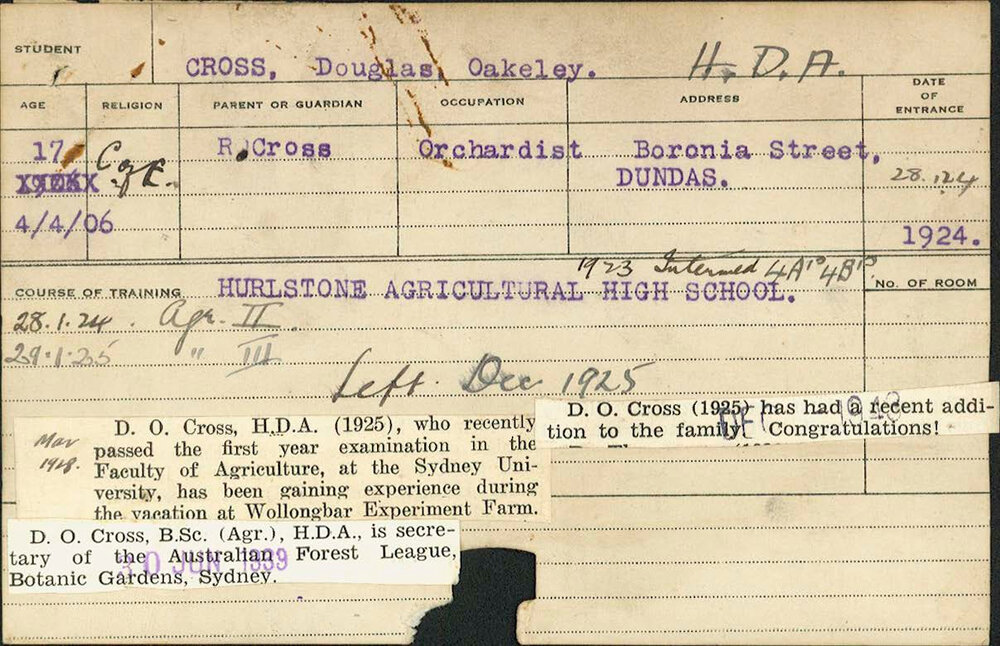 STUDENT
CROSS, Douglas Oakeley. H.D.A.
AGE RELIGION PARENT OR GUARDIAN OCCUPATION ADDRESS DATE OF ENTRANCE
17 C of E. R. Cross Orchardist Boronia Street,
DUNDAS. 28.1.24
4/4/06
1924.
1923 Intermed 4A's 4B's
COURSE OF TRAINING HURLSTONE AGRICULTURAL HIGH SCHOOL. No. OF ROOM
28.1.24. Agr. II.
29.1.25 " III
Left Dec 1925
D. O. Cross (1925) has had a recent addi-
tion to the family. Congratulations!
Mar
1928.
D. O. Cross, H.D.A. (1925), who recently
passed the first year examination in the
Faculty of Agriculture, at the Sydney Uni-
versity, has been gaining experience during
the vacation at Wollongbar Experiment Farm.
D. O. Cross, B.Sc. (Agr.), H.D.A., is secre-
tary of the Australian Forest League,
Botanic Gardens, Sydney.
30 JUN 1939